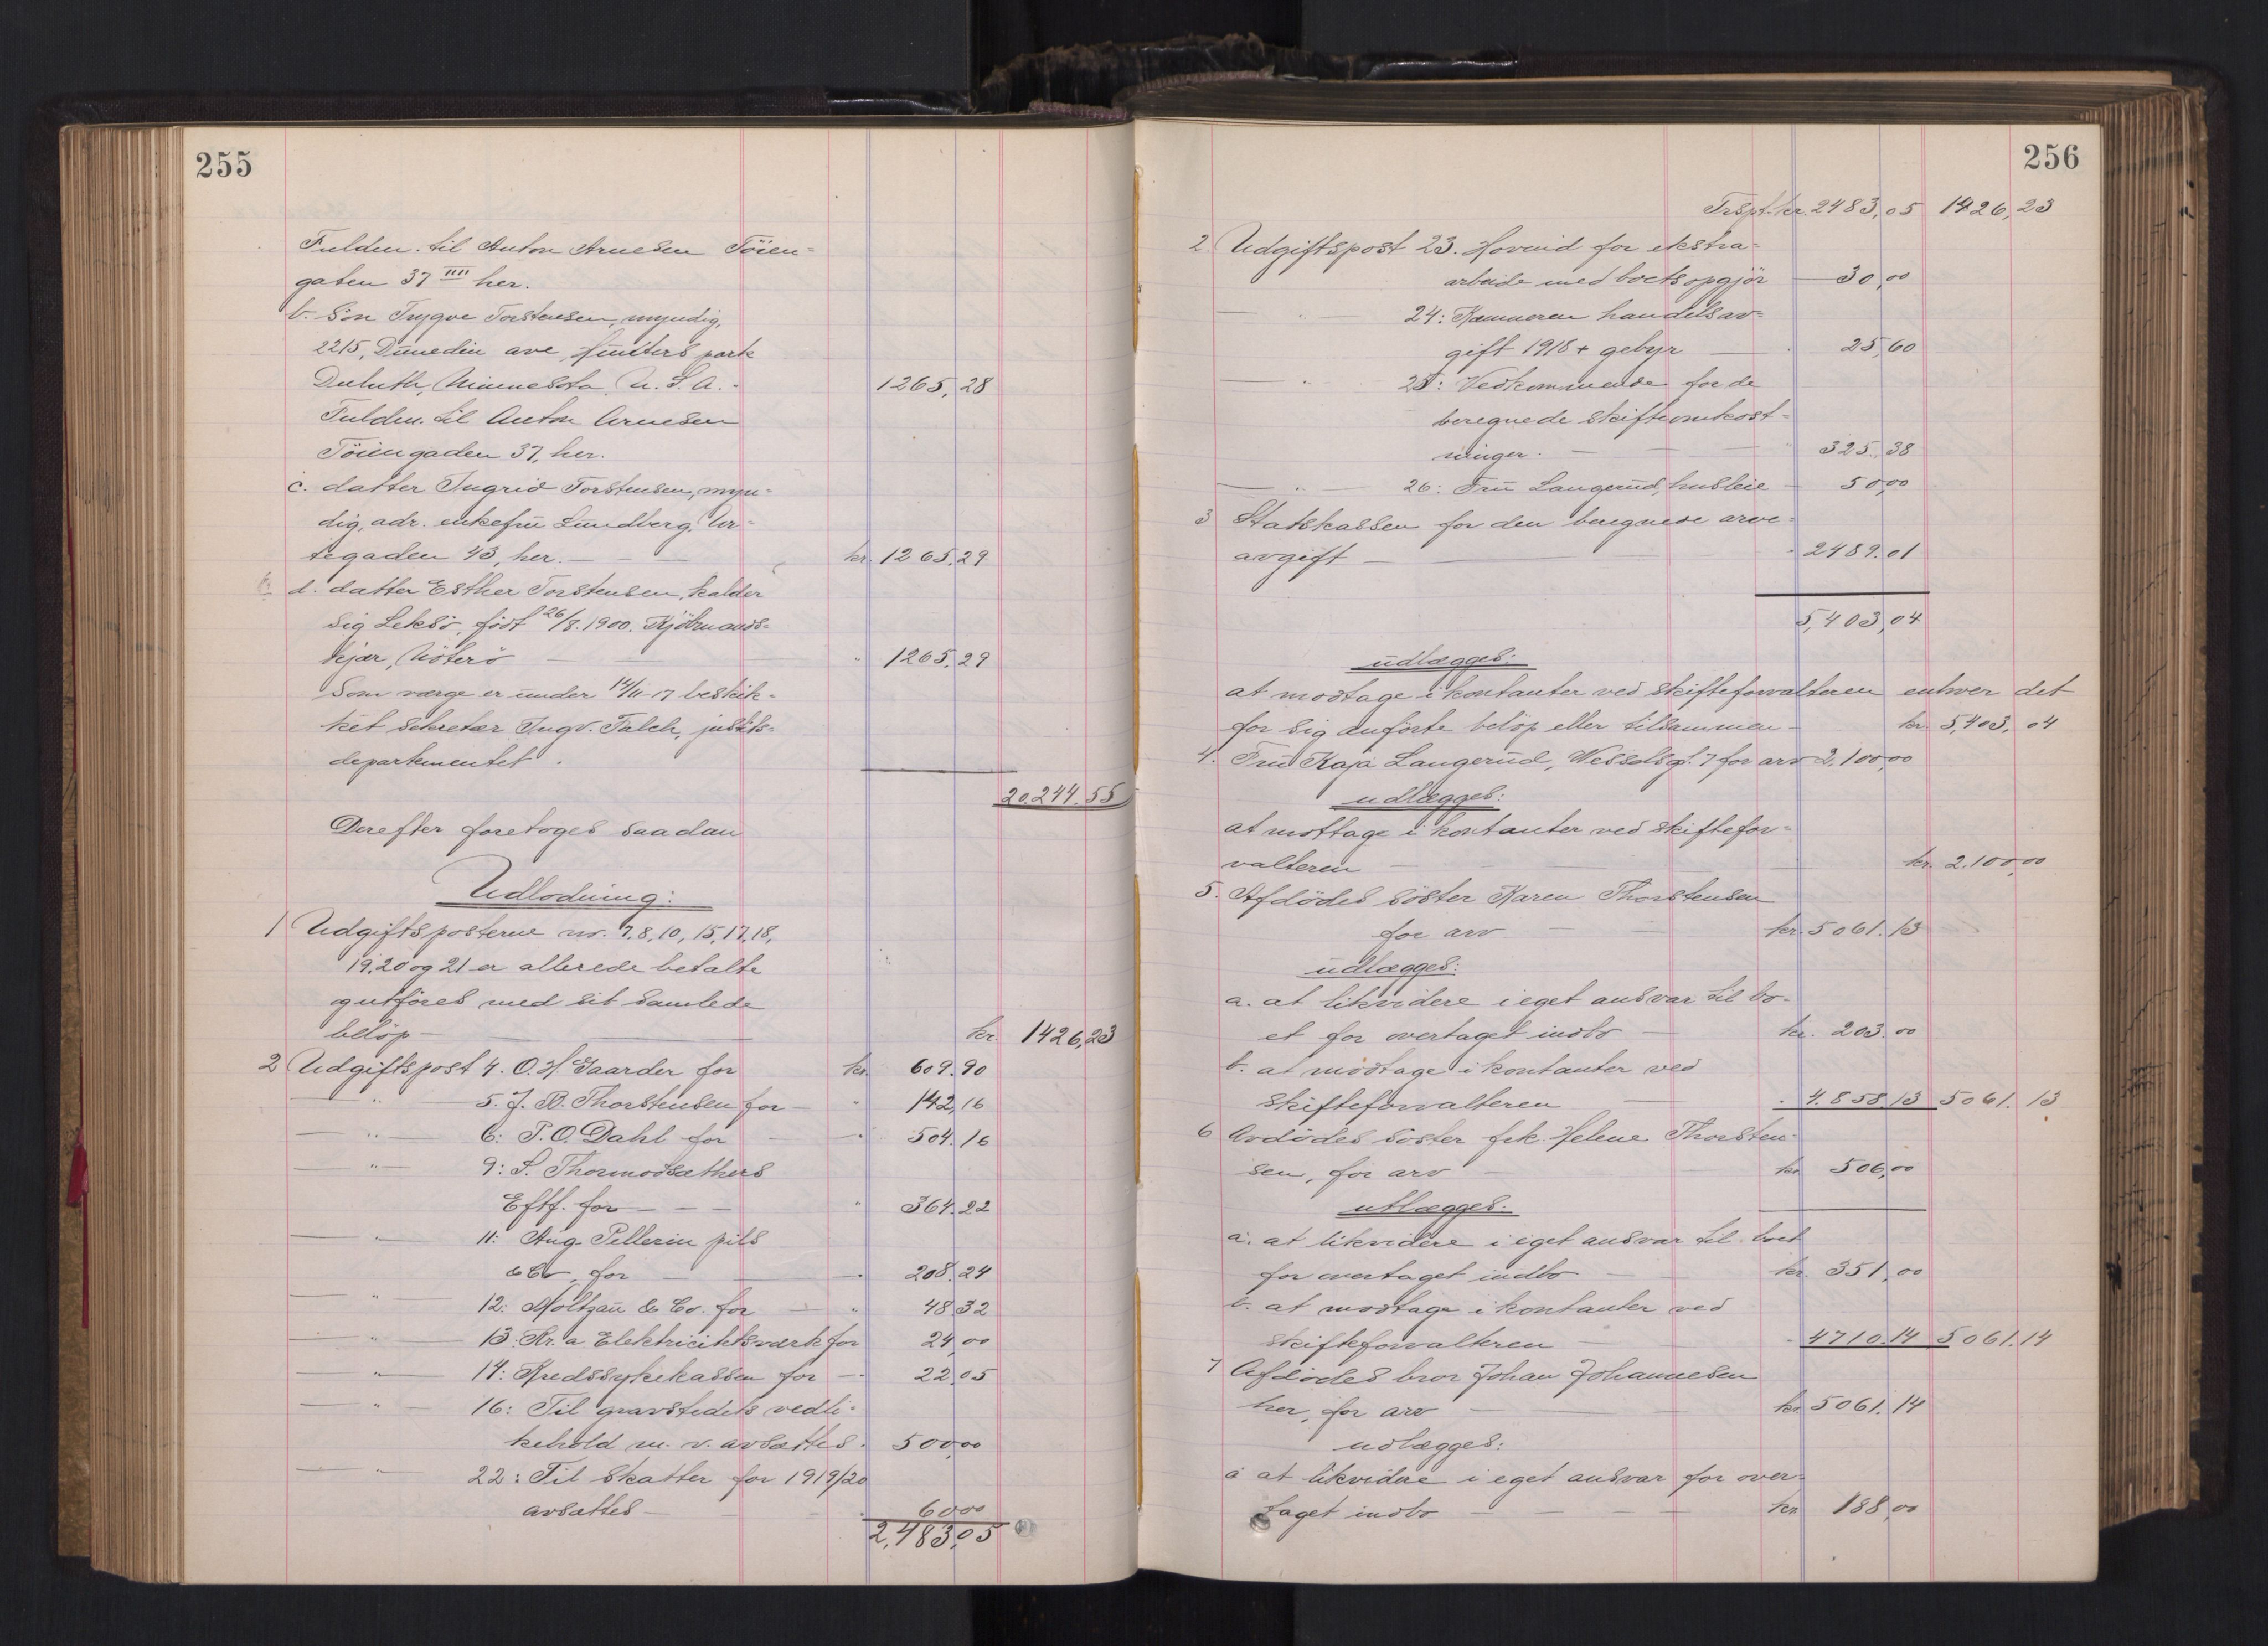 255
Fulldm. til Anton Arnesen Töien=
gaten 37 IIII her.
b. Sön Trygve Torstensen, myndig,
2215, Dunedin ave, Hunters park
Duluth, Minnesota, U. S. A. - 1265,28
Fuldm. til Anton Arnesen
Töiengaden 37, her.
c. datter Ingrid Torstensen, myn=
dig, adr. enkefru Lundberg, Ur=
tegaden 43, her. — kr. 1265,29
d. datter Esther Torstensen, kalder
sig Leksö, födt 26/8. 1900. Kjöbmands=
skjær, Nöterö — " 1265,29
Som værge er under 14/11-17 beskik=
ket sekretær Ingv. Falck, justits=
departementet.
20.244.55
Derefter foretoges saadan
Udlodning:
1 Udgiftsposterne nr. 7, 8, 10, 15, 17, 18,
19, 20 og 21 er allerede betalte
og utföres med sit samlede
belöp — kr. 1426,23
2 Udgiftspost 4. O. H. Gaarder for kr. 609.90
— " — 5. J. B. Thorstensen for — " 142,16
— " — 6: P. O. Dahl for — " 504.16
— " — 9: S. Thormodsæthers
Eftf. for — — — " 364.22
— " — 11: Aug. Pellerin fils
& Co, for — " 208.24
— " — 12: Moltzau & Co. for — " 48.32
— " — 13: Kr.a Elektricitetsværk for 24,00
— " — 14: Kredssykekassen for — 22,05
— " — 16: Til gravstedets vedli=
kehold m. v. avsættes. 500,00
— " — 22: Til skatter for 1919/20
avsættes — 60,00
2,483,05
256
Trspt. kr. 2483,05 1426,23
2 Udgiftspost 23. Hovind for ekstra=
arbeide med boets opgjör — 30,00
— " — 24: Kæmneren handelsav=
gift 1918 + gebyr — 25,60
— " — 25: Vedkommende for de
beregnede skifteomkost=
ninger. — — " 325,38
— " — 26: Fru Langerud, husleie — 50,00
3 Statskassen for den beregnede arve=
avgift — — " 2489.01
5,403,04
udlægges:
at modtage i kontanter ved skifteforvalteren enhver det
for sig anförte belöp eller tilsammen — kr. 5,403,04
4. Fru Kaja Langerud, Wesselsgt. 7 for arv 2,100,00
udlægges:
at mottage i kontanter ved skiftefor=
valteren — kr. 2,100,00
5. Afdödes söster Karen Thorstensen
for arv — kr. 5061.13
udlægges:
a. at likvidere i eget ansvar til bo=
et for overtaget indbo — kr. 203.00
b. at modtage i kontanter ved
skifteforvalteren — " 4.858.13 5061.13
6 Avdödes söster frk. Helene Thorsten=
sen, for arv — kr 506,00
utlægges:
a. at likvidere i eget ansvar til boet
for overtaget indbo — kr. 351,00
b. at modtage i kontanter ved
skifteforvalteren — " 4710.14 5061.14
7 Afdödes bror Johan Johannesen
her, for arv — kr 5061.14
udlægges:
a at likvidere i eget ansvar for over=
taget indbo — kr. 188,00